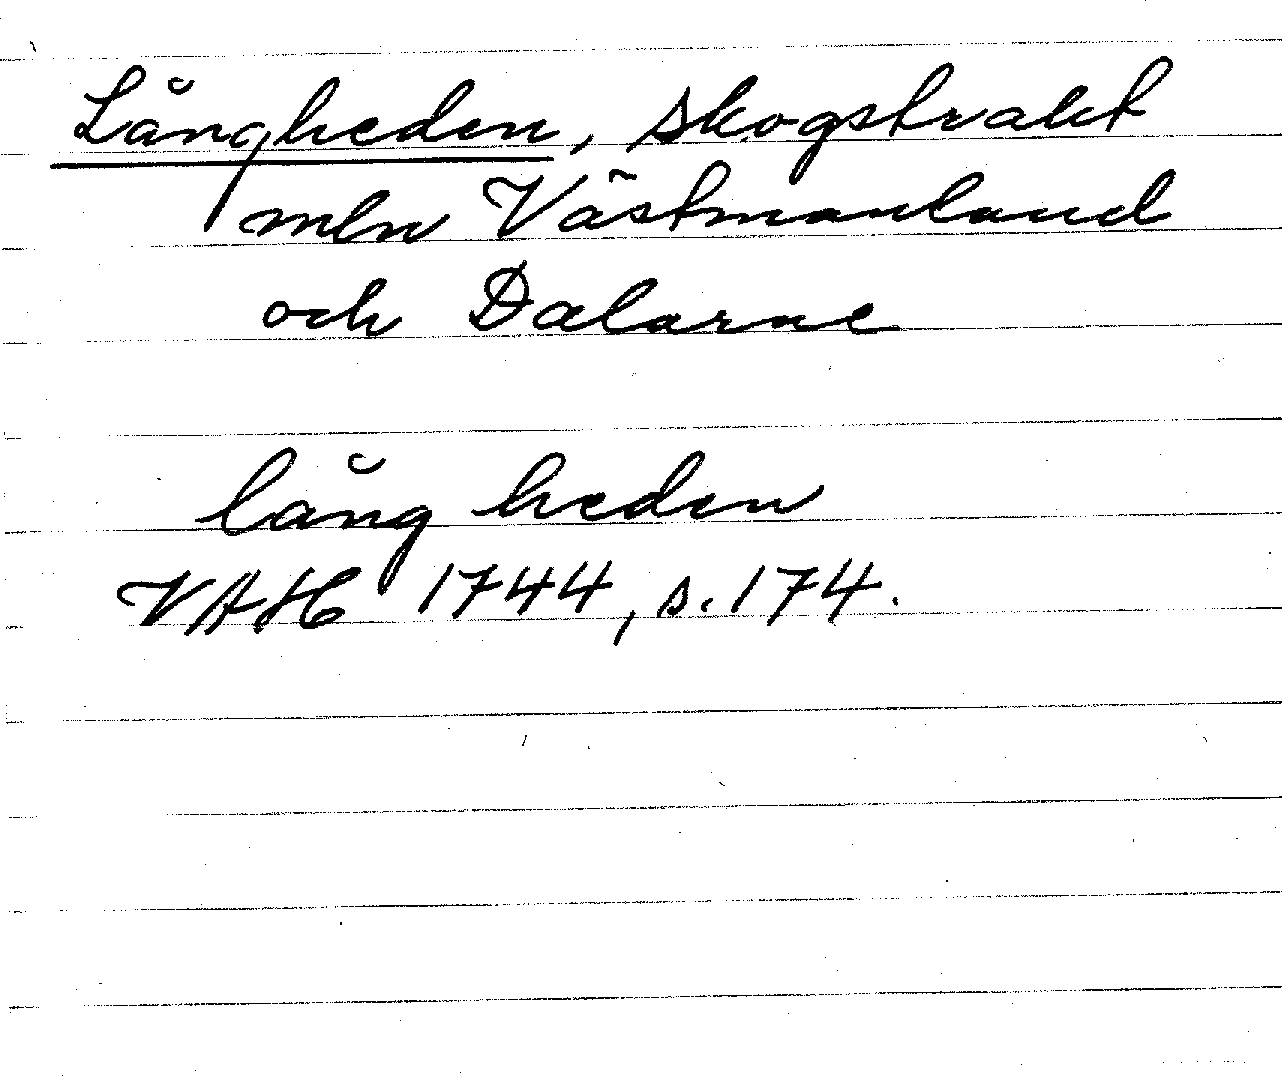 Långheden, skogstrakt
mln Västmanland
och Dalarne
lång heden
VAH 1744, s. 174.